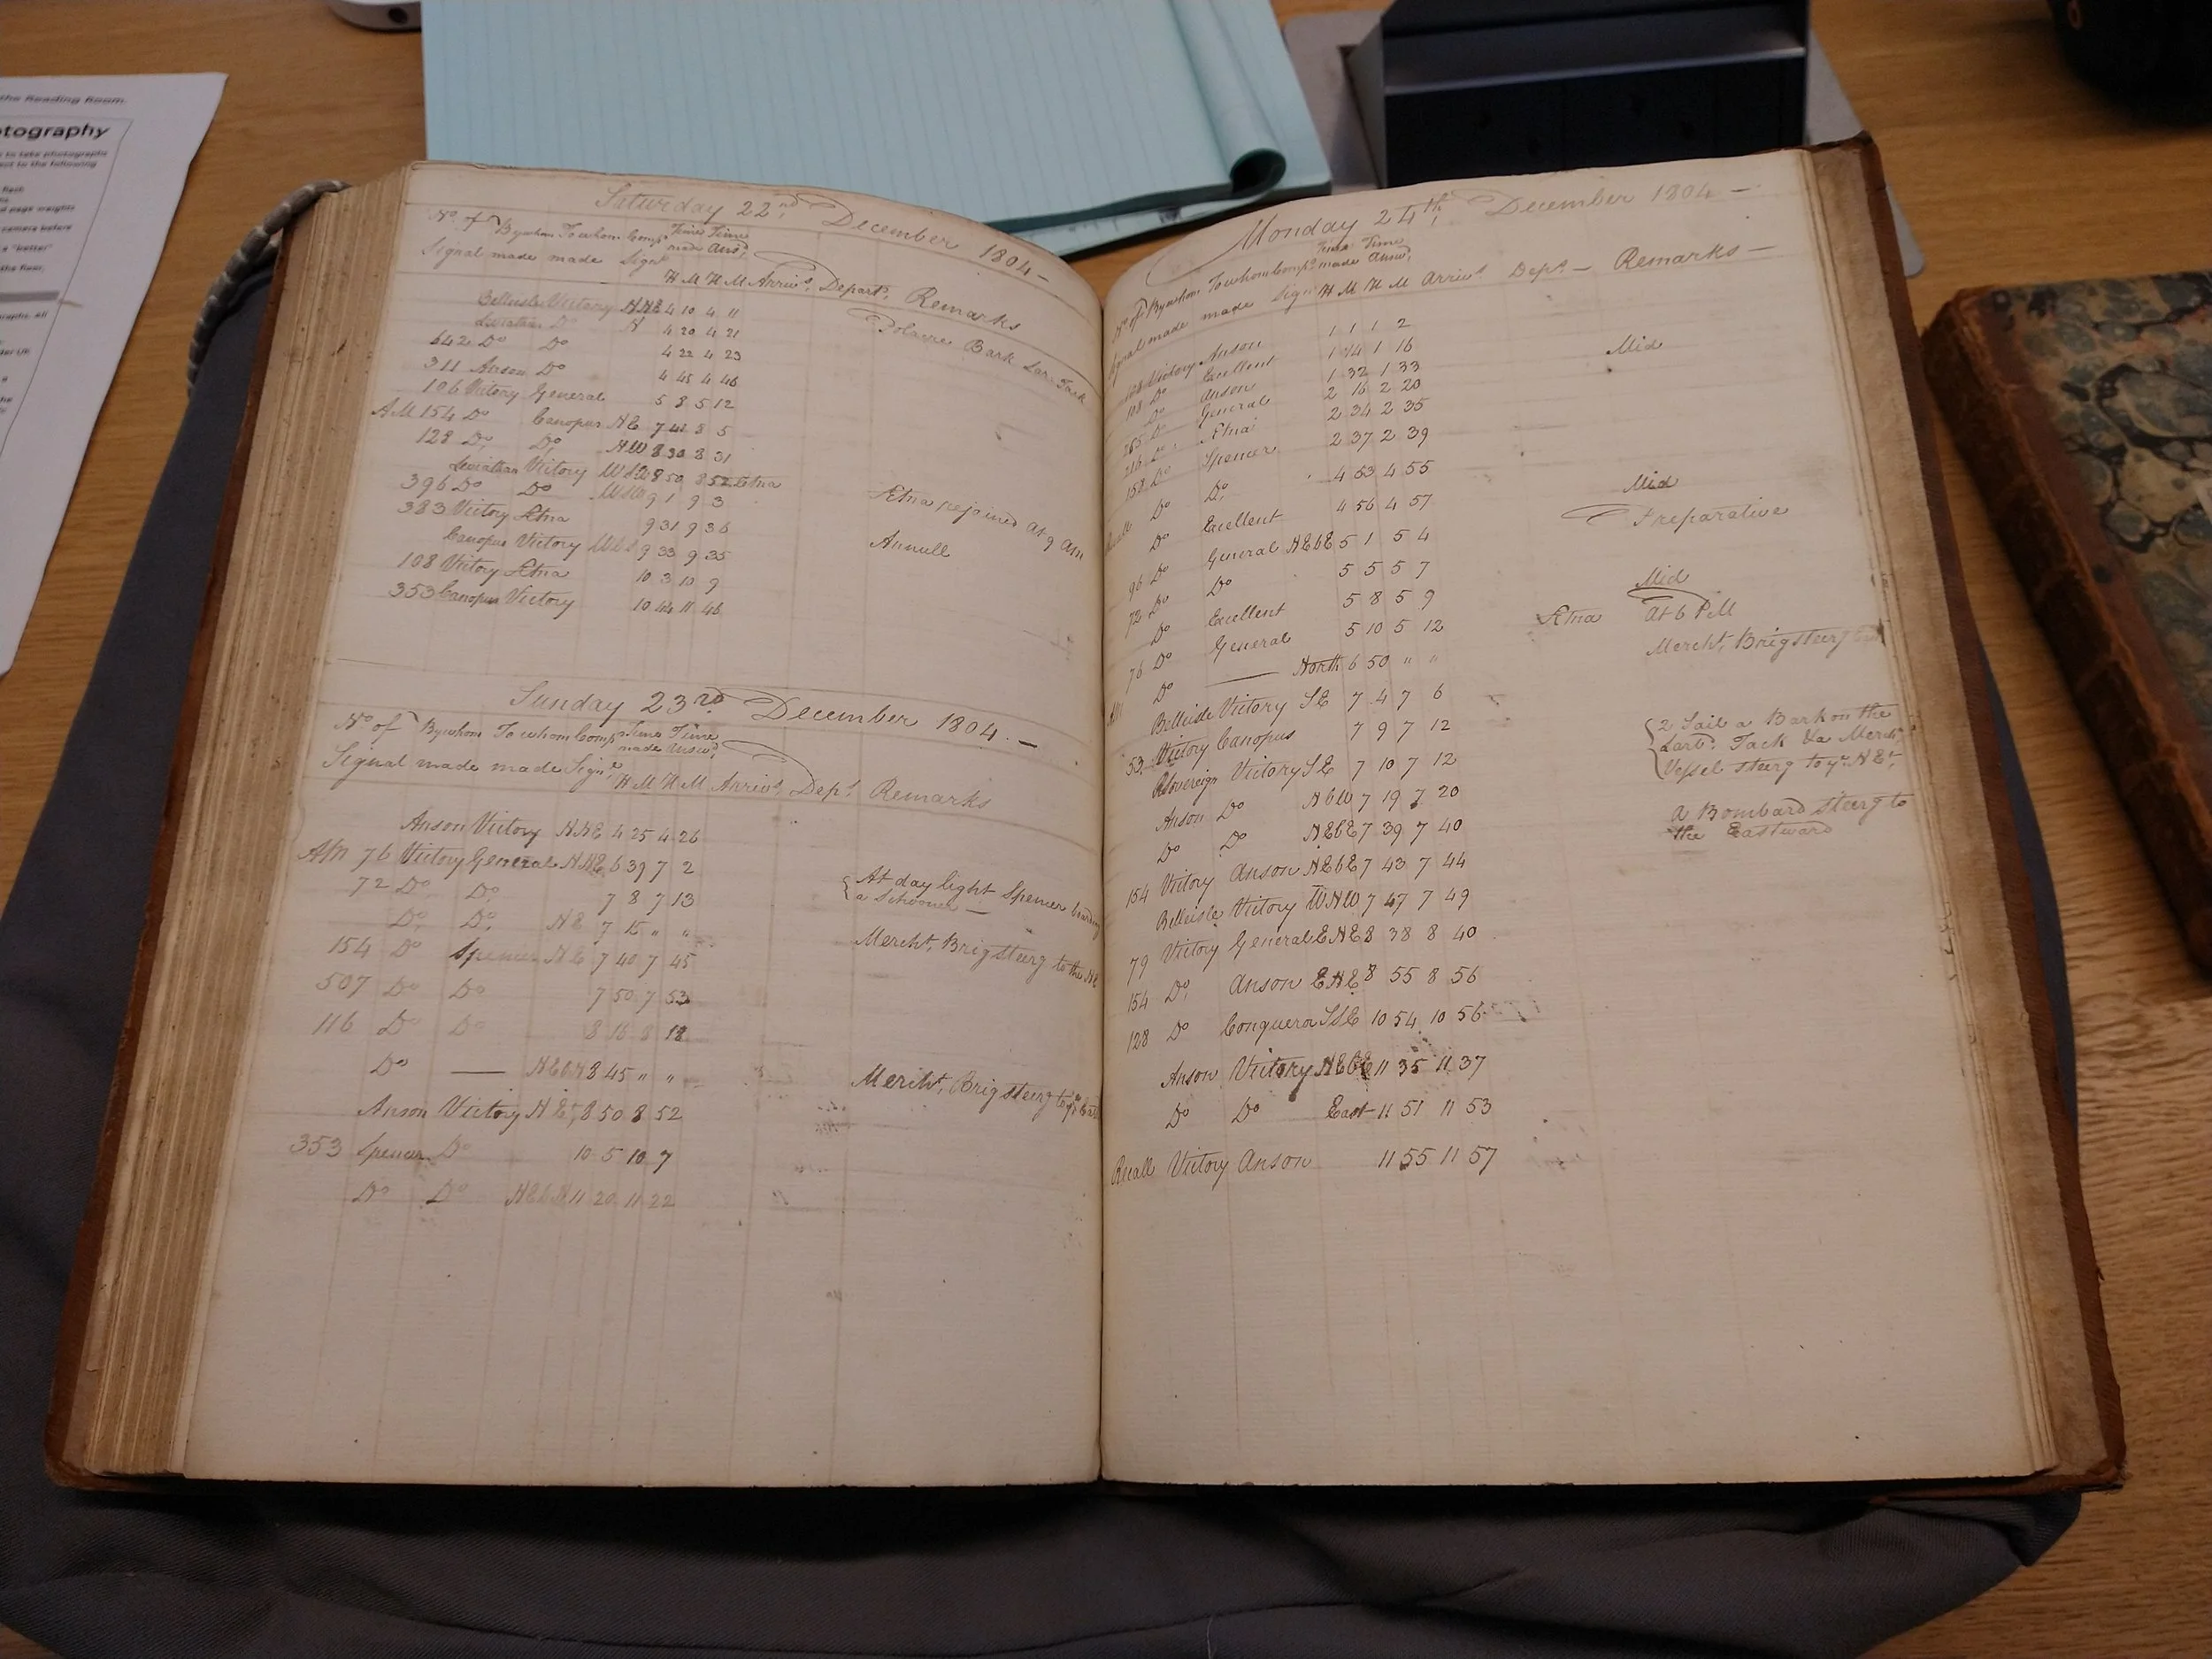 the Reading Room.
tography
to take photographs
ect to the following
flash
page margins
camera before
a "better"
the floor.
Saturday 22nd, December 1804 —
No. of By whom To whom Comps Time Time
Signal made made Signl made Answd,
H M H M Arrivs, Depart, Remarks
Belleisle Victory NNE 4 10 4 11 Polacre Bark Lar. Tack
Leviathan Do N 4 20 4 21
642 Do Do 4 22 4 23
311 Anson Do 4 45 4 46
106 Victory General 5 8 5 12
AM 154 Do Canopus NE 7 8 5
128 Do, Do, NW 8 30 8 31
Leviathan Victory WSW 8 50 8 52 Etna
396 Do Do WSW 9 1 9 3 Etna rejoined at 9 AM
383 Victory Etna 9 31 9 36
Canopus Victory 9 33 9 35 Annull
108 Victory Etna 10 3 10 9
353 Canopus Victory 10 44 11 46
Sunday 23rd December 1804. —
No of By whom To whom Comps Time Time
made Answd,
Signal made made Signl H M H M Arrivs, Dept Remarks
Anson Victory NNE 4 25 4 26
AM 76 Victory General NNE 6 39 7 2
72 Do, Do, 7 8 7 13 At day light Spencer
a Schooner —
Do, Do, NE 7 15 " "
154 Do Spencer NE 7 40 7 45 Mercht, Brig steerg to the NE
507 Do Do 7 50 7 53
116 Do Do 8 16 8 18
Do — NEbN 8 45 " " Mercht, Brig steerg to
Anson Victory NEt, 8 50 8 52
353 Spencer Do 10 5 10 7
Do Do NEbN 11 20 11 22
Monday 24th, December 1804 —
No of By whom To whom Comps Time Time
made Answd,
Signal made made Signl H M H M Arrivs. Dept — Remarks —
108 Victory Anson 1 1 1 2
108 Do Excellent 1 14 1 16 Mid
Do Anson 1 32 1 33
265 Do General 2 16 2 20
216 Do Etna 2 34 2 35
158 Do Spencer 2 37 2 39
Do Do, 4 53 4 55
Do Excellent 4 56 4 57 Mid
96 Do General NEbE 5 1 5 4 Preparative
72 Do Do 5 5 5 7
Do Excellent 5 8 5 9 Mid
76 Do General 5 10 5 12 Etna At 6 PM
AM Do — North 6 50 " " Mercht, Brig steerg
Belleisle Victory SE 7 4 7 6
53 Victory Canopus 7 9 7 12
RSovereign Victory SE 7 10 7 12 2 Sail a Bark on the
Larbd. Tack &a Mercht
Vessel steerg to ye NEt,
Anson Do NbW 7 19 7 20
Do Do NEbE 7 39 7 40 a Bombard steerg to
the Eastward
154 Victory Anson NEbE 7 43 7 44
Belleisle Victory WNW 7 47 7 49
79 Victory General ENE 8 38 8 40
154 Do, Anson ENE 8 55 8 56
128 Do Conqueror SSE 10 54 10 56
Anson Victory NEbE 11 35 11 37
Do Do East 11 51 11 53
Recall Victory Anson 11 55 11 57